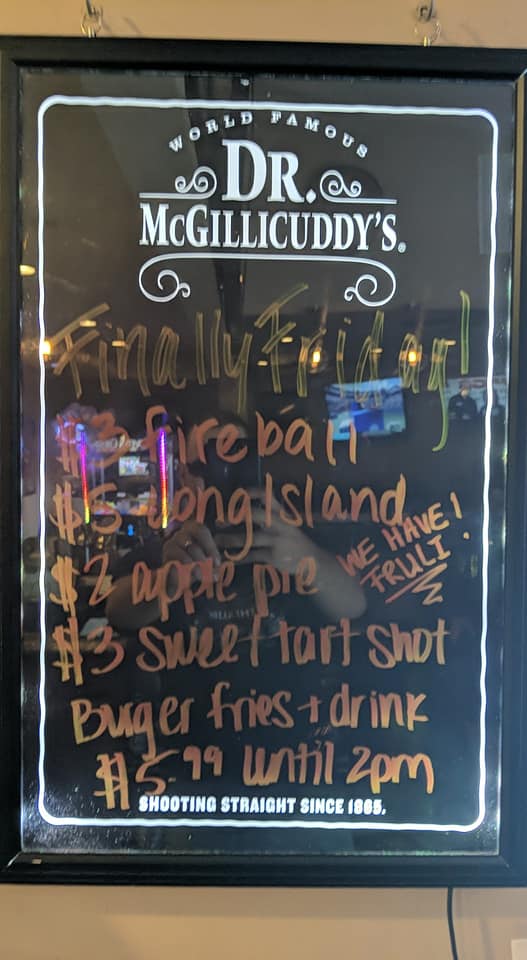 WORLD FAMOUS
DR.
MCGILLICUDDY'S®
Finally Friday!
$3 fireball
$5 Long Island
$2 apple pie
WE HAVE!
FRULI!
$3 Sweet tart Shot
Burger fries + drink
$5.99 until 2pm
SHOOTING STRAIGHT SINCE 1865.